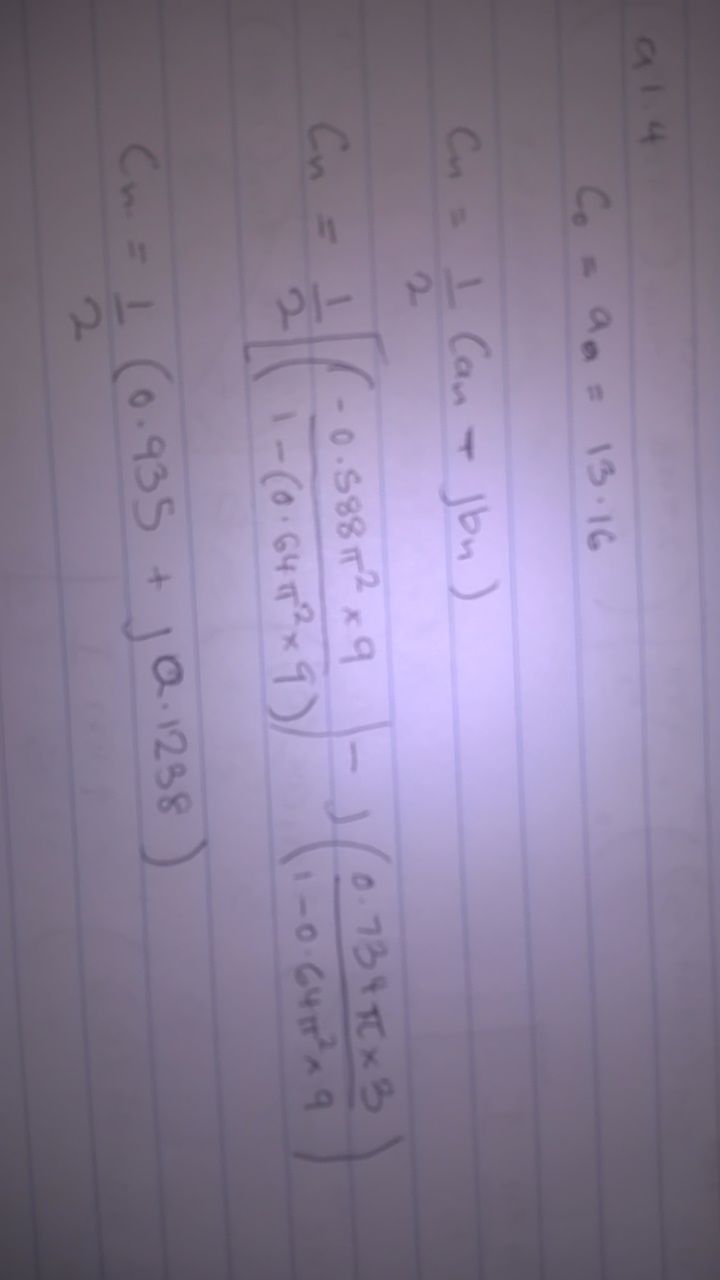 a 1.4
C₀ = a₀ = 13.16
Cₙ = 1/2 (aₙ - jbₙ)
Cₙ = 1/2 [(-0.588π² × 9 / 1 - (0.64π² × 9)) - j(0.734π × 3 / 1 - 0.64π² × 9)]
Cₙ = 1/2 (0.935 + j0.1238)